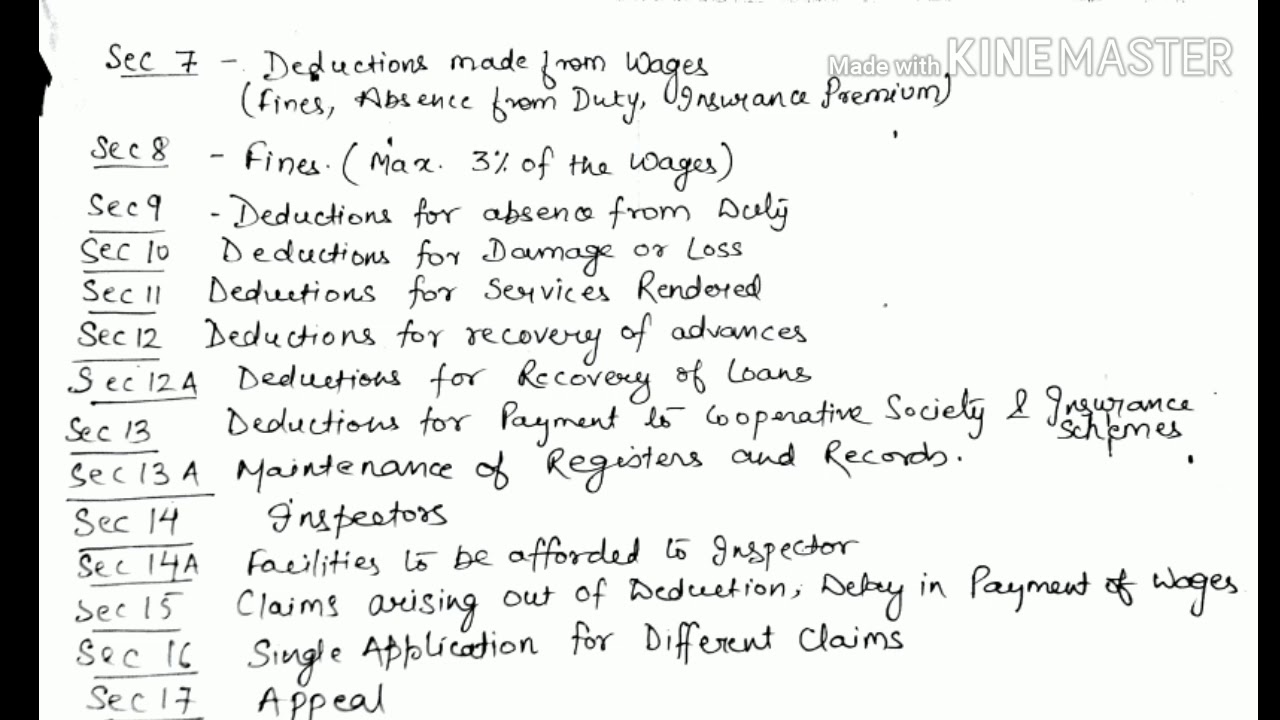 Made with KINEMASTER
Sec 7 - Deductions made from Wages
(Fines, Absence from Duty, Insurance Premium)
Sec 8 - Fines. (Max. 3% of the Wages)
Sec 9 - Deductions for absence from Duty
Sec 10 Deductions for Damage or Loss
Sec 11 Deductions for Services Rendered
Sec 12 Deductions for recovery of advances
Sec 12A Deductions for Recovery of Loans
Sec 13 Deductions for Payment to Cooperative Society & Insurance
Schemes
Sec 13A Maintenance of Registers and Records.
Sec 14 Inspectors
Sec 14A Facilities to be afforded to Inspector
Sec 15 Claims arising out of Deduction, Delay in Payment of Wages
Sec 16 Single Application for Different Claims
Sec 17 Appeal